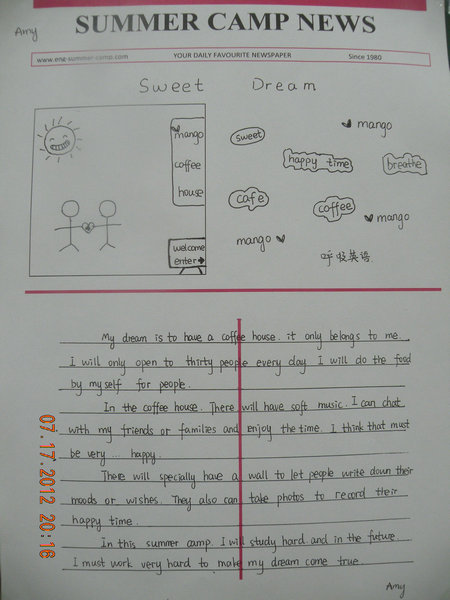 Amy
SUMMER CAMP NEWS
www.eng-summer-camp.com YOUR DAILY FAVOURITE NEWSPAPER Since 1980
Sweet Dream
mango
coffee
house
welcome
enter
sweet
mango
happy time
breathe
cafe
coffee
mango
mango
呼吸英语
My dream is to have a coffee house. it only belongs to me.
I will only open to thirty people every day. I will do the food
by myself for people.
In the coffee house. There will have soft music. I can chat
with my friends or families and enjoy the time. I think that must
be very ... happy.
There will specially have a wall to let people write down their
moods or wishes. They also can take photos to record their
happy time.
In this summer camp. I will study hard and in the future
I must work very hard to make my dream come true.
Amy
07.17.2012 20:16